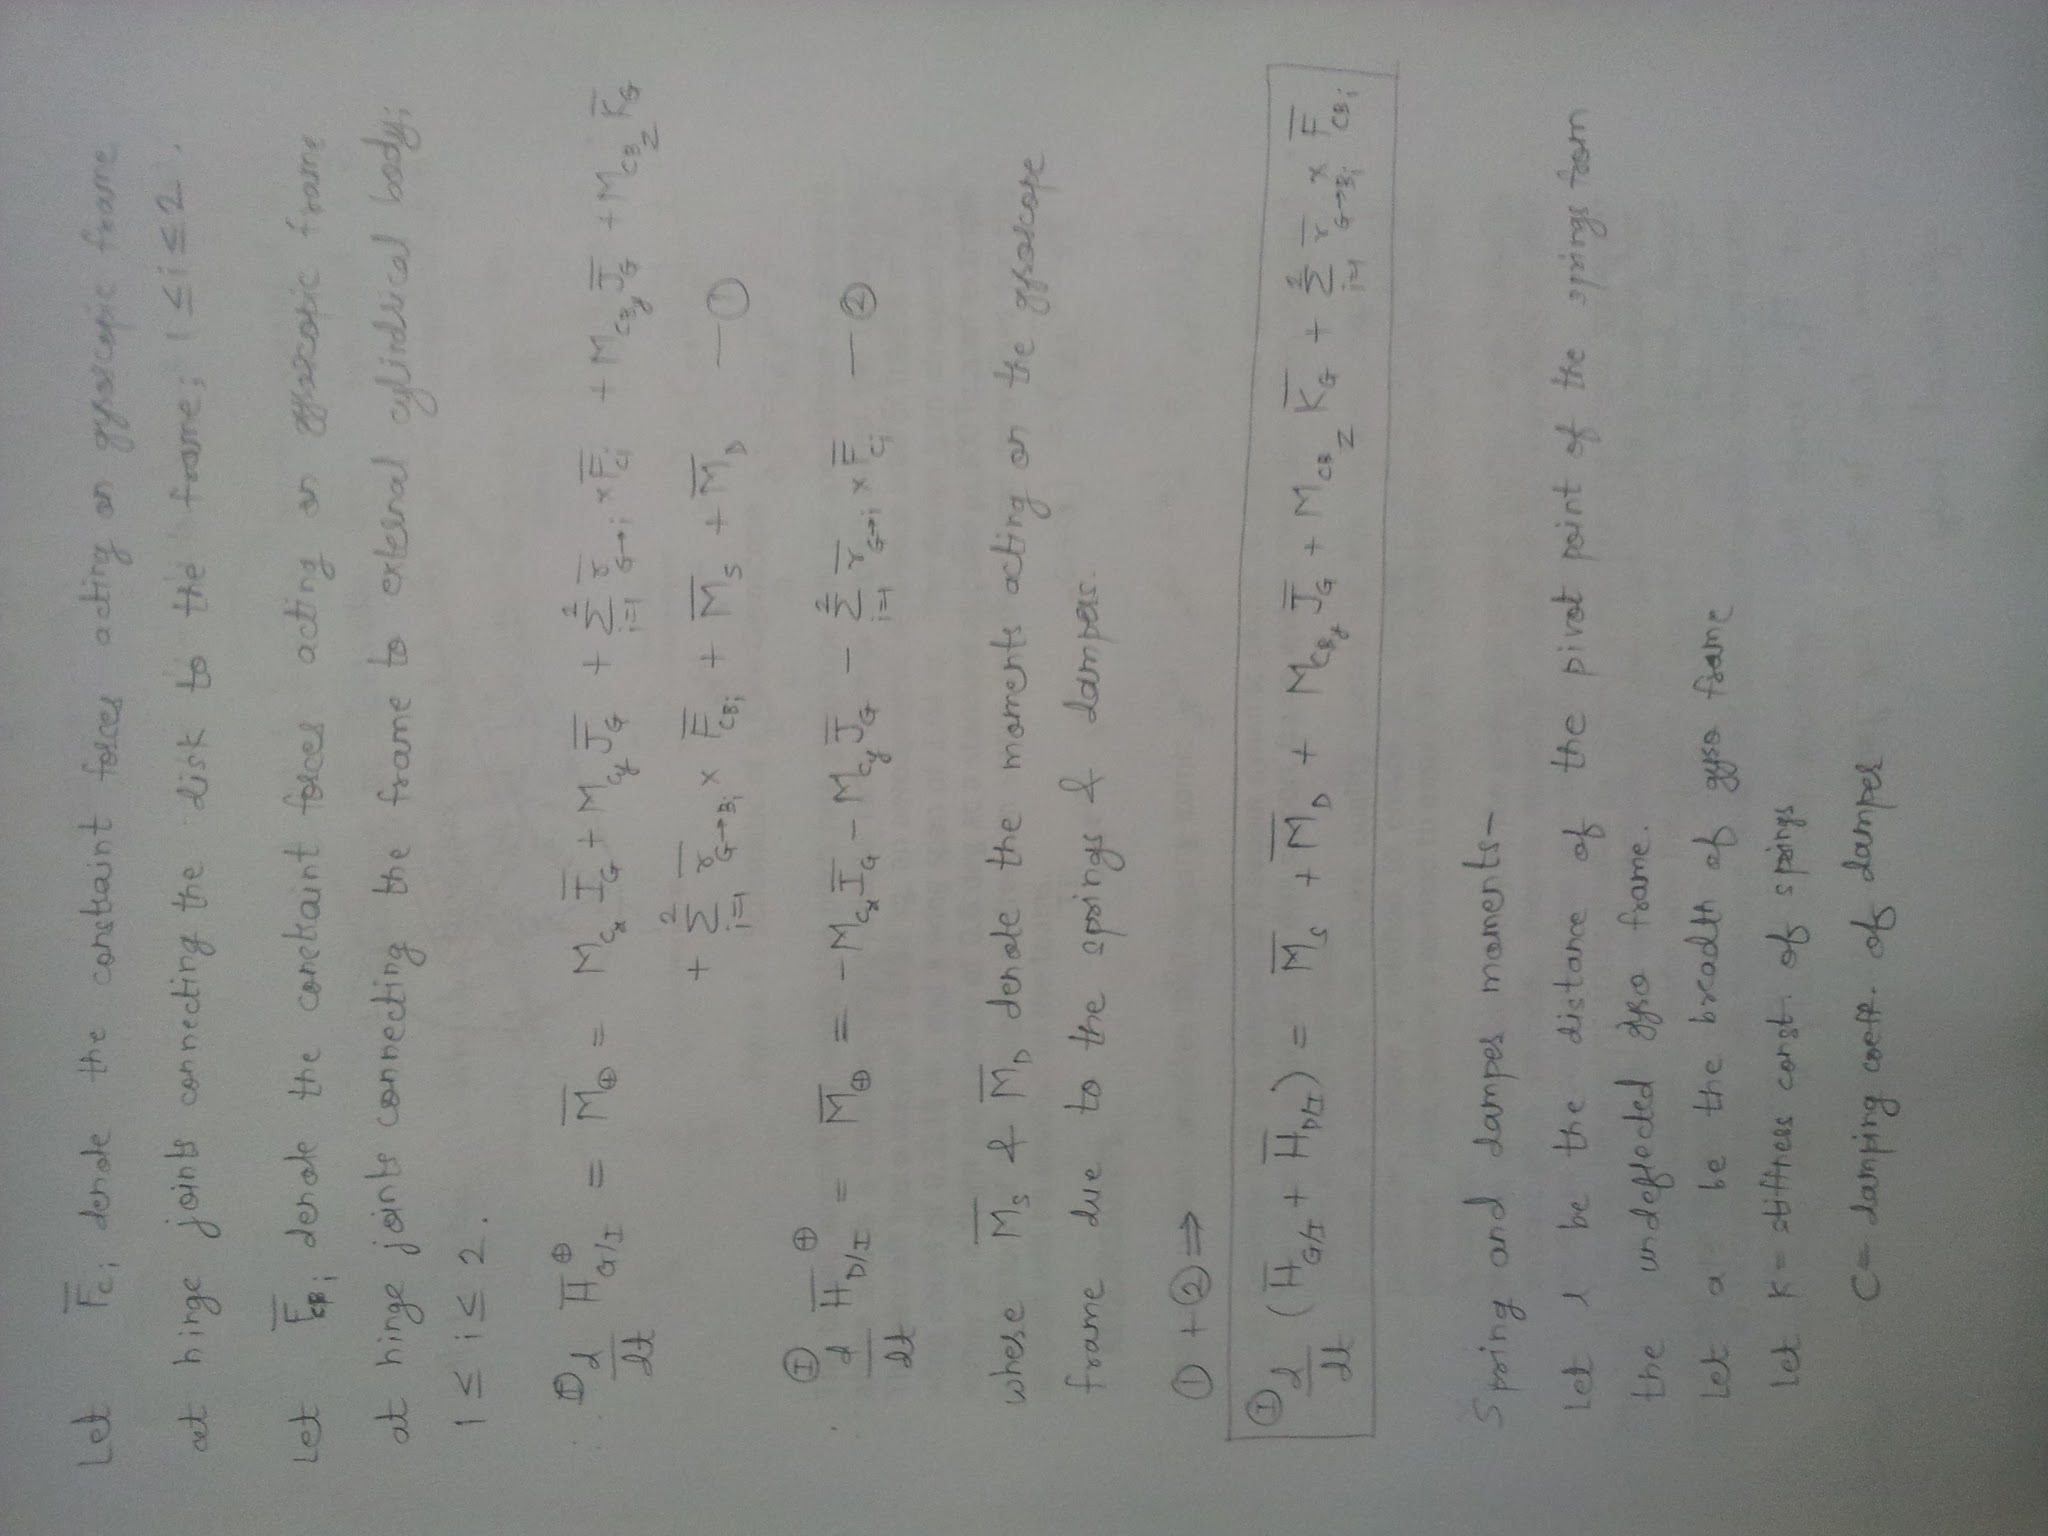 Let F̄_Ci denote the constraint forces acting on gyroscopic frame
at hinge joints connecting the disk to the frame; 1 ≤ i ≤ 2.
Let F̄_CBi denote the constraint forces acting on gyroscopic frame
at hinge joints connecting the frame to external cylindrical body;
1 ≤ i ≤ 2.
∴ Ⓘ d/dt H̄_G/I^⊕ = M̄_⊕ = M_Cx Ī_G + M_Cy J̄_G + Σ_{i=1}^{2} r̄_G→i × F̄_Ci + M_CBy J̄_G + M_CBz K̄_G
+ Σ_{i=1}^{2} r̄_G→Bi × F̄_CBi + M̄_S + M̄_D —①
Ⓘ d/dt H̄_D/I^⊕ = M̄_⊕ = -M_Cx Ī_G - M_Cy J̄_G - Σ_{i=1}^{2} r̄_G→i × F̄_Ci —②
where M̄_S & M̄_D denote the moments acting on the gyroscope
frame due to the springs & dampers.
① + ② ⇒
Ⓘ d/dt (H̄_G/I + H̄_D/I) = M̄_S + M̄_D + M_CBy J̄_G + M_CBz K̄_G + Σ_{i=1}^{2} r̄_G→Bi × F̄_CBi
Spring and damper moments-
Let l be the distance of the pivot point of the springs from
the undeflected gyro frame.
Let a be the breadth of gyro frame
Let K = stiffness const. of springs
C = damping coeff. of damper